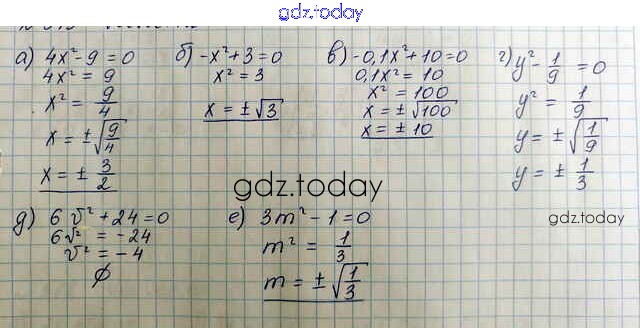 gdz.today
а) 4x² - 9 = 0
4x² = 9
x² = 9/4
x = ±√(9/4)
x = ± 3/2
б) -x² + 3 = 0
x² = 3
x = ±√3
в) -0,1x² + 10 = 0
0,1x² = 10
x² = 100
x = ±√100
x = ± 10
г) y² - 1/9 = 0
y² = 1/9
y = ±√(1/9)
y = ± 1/3
gdz.today
gdz.today
д) 6v² + 24 = 0
6v² = -24
v² = -4
∅
е) 3m² - 1 = 0
m² = 1/3
m = ±√(1/3)